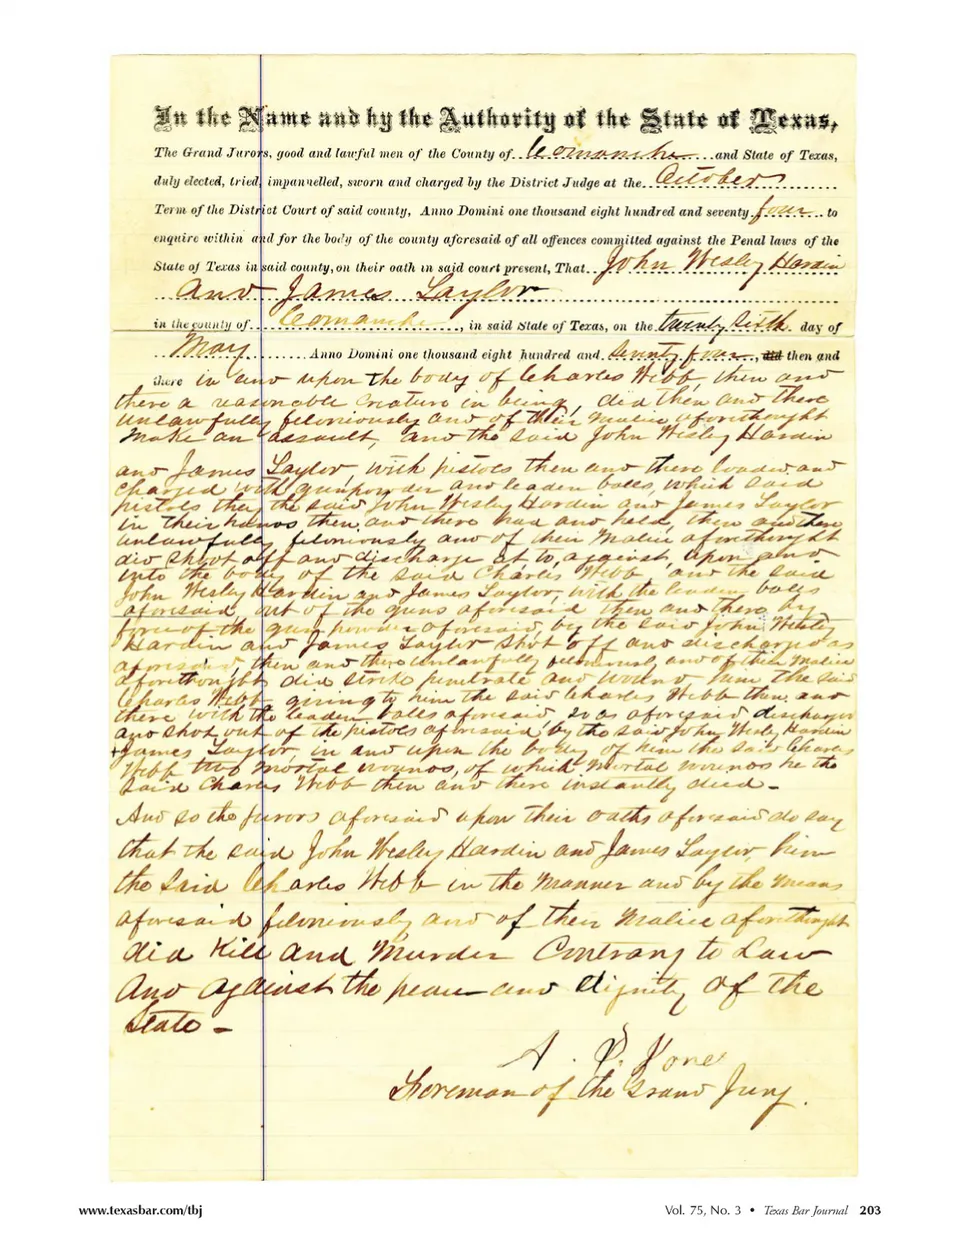 In the Name and by the Authority of the State of Texas,
The Grand Jurors, good and lawful men of the County of Comanche and State of Texas,
duly elected, tried, impannelled, sworn and charged by the District Judge at the October
Term of the District Court of said county, Anno Domini one thousand eight hundred and seventy four to
enquire within and for the body of the county aforesaid of all offences committed against the Penal laws of the
State of Texas in said county, on their oath in said court present, That John Wesley Hardin
and James Taylor
in the county of Comanche, in said State of Texas, on the twenty sixth day of
May Anno Domini one thousand eight hundred and seventy four, and then and
there in and upon the body of Charles Webb, then and
there a reasonable creature in being, did then and there
unlawfully feloniously and of their malice aforethought
make an assault, and the said John Wesley Hardin
and James Taylor, with pistols then and there loaded and
charged with gunpowder and leaden balls, which said
pistols they the said John Wesley Hardin and James Taylor
in their hands then and there had and held, then and there
unlawfully feloniously and of their malice aforethought
did shoot off and discharge at to, against, upon and
into the body of the said Charles Webb, and the said
John Wesley Hardin and James Taylor, with the leaden balls
aforesaid, out of the guns aforesaid then and there by
force of the gun powder aforesaid, by the said John Wesley
Hardin and James Taylor shot off and discharged as
aforesaid, then and there unlawfully feloniously and of their malice
aforethought did strike penetrate and wound him the said
Charles Webb giving to him the said Charles Webb then and
there with the leaden balls aforesaid so as aforesaid discharged
and shot out of the pistols aforesaid by the said John Wesley Hardin
+ James Taylor, in and upon the body of him the said Charles
Webb two mortal wounds, of which mortal wounds he the
said Charles Webb then and there instantly died -
And so the jurors aforesaid upon their oaths aforesaid do say
that the said John Wesley Hardin and James Taylor, him
the said Charles Webb in the manner and by the means
aforesaid feloniously and of their malice aforethought
did kill and murder Contrary to Law
And against the peace and dignity of the
State -
A.
Foreman of the Grand Jury.
www.texasbar.com/tbj Vol. 75, No. 3 • Texas Bar Journal 203